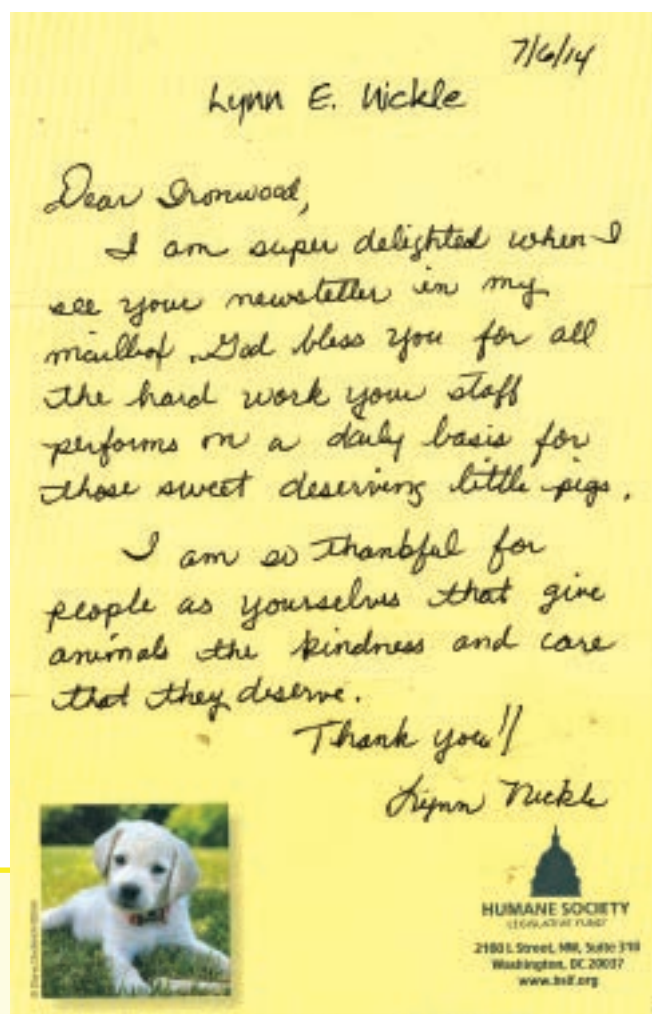 7/6/14
Lynn E. Nickle
Dear Ironwood,
I am super delighted when I
see your newsletter in my
mailbox. God bless you for all
the hard work your staff
performs on a daily basis for
those sweet deserving little pigs.
I am so thankful for
people as yourselves that give
animals the kindness and care
that they deserve.
Thank you!!
Lynn Nickle
HUMANE SOCIETY
LEGISLATIVE FUND
2100 L Street, NW, Suite 310
Washington, DC 20037
www.hslf.org